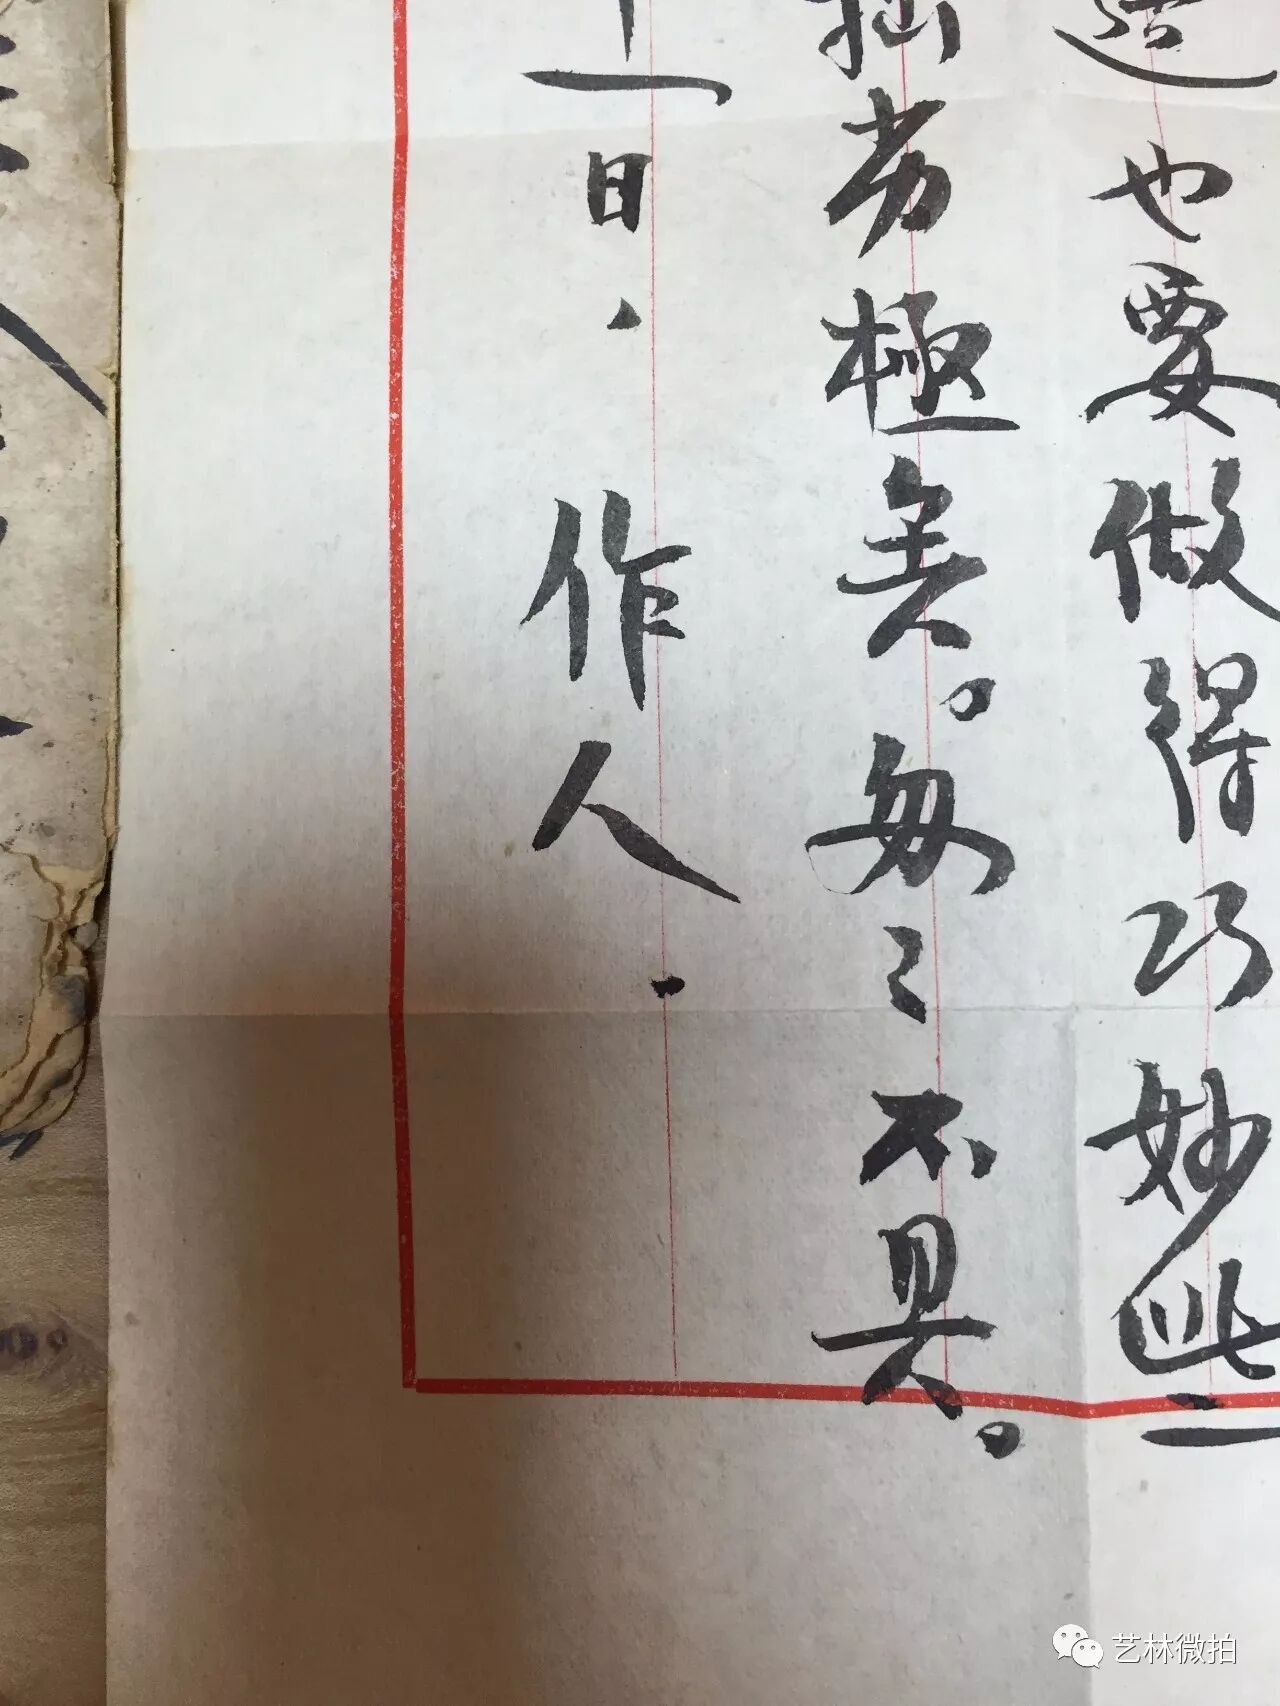 造也要做得巧妙些
拙劣極矣。匆々不具。
十一日,作人.
艺林微拍